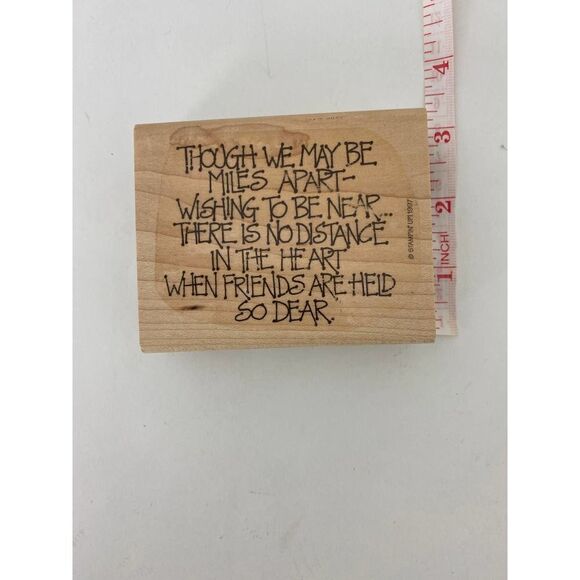 THOUGH WE MAY BE
MILES APART-
WISHING TO BE NEAR...
THERE IS NO DISTANCE
IN THE HEART
WHEN FRIENDS ARE HELD
SO DEAR.
© STAMPIN' UP! 1997
1 INCH
2
3
4